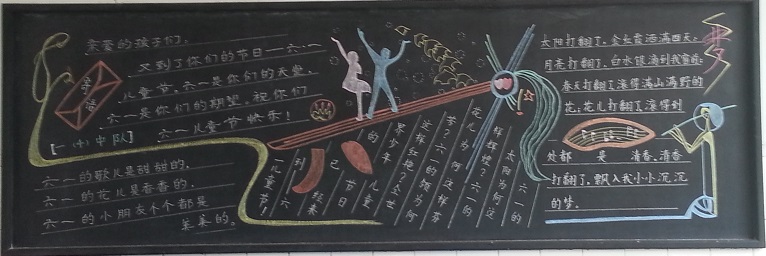 亲爱的孩子们:
又到了你们的节日—六·一
儿童节,六一是你们的天堂,
六一是你们的期望,祝你们
六一儿童节快乐!
[一(4)中队]
六一的歌儿是甜甜的,
六一的花儿是香香的,
六一的小朋友个个都是
美美的。
六一的
太阳为何这
样辉煌?六一的
花儿为何这样芬
芳?六一的为何
这样红艳?全世
界少年儿童
的节日
已经来
到六
一儿童节!
梦
太阳打翻了,金长霞洒满西天;
月亮打翻了,白水银滴到我窗前;
春天打翻了滚得满山满野的
花;花儿打翻了滚得到
处都是清香,清香
打翻了,飘入我小小沉沉
的梦。